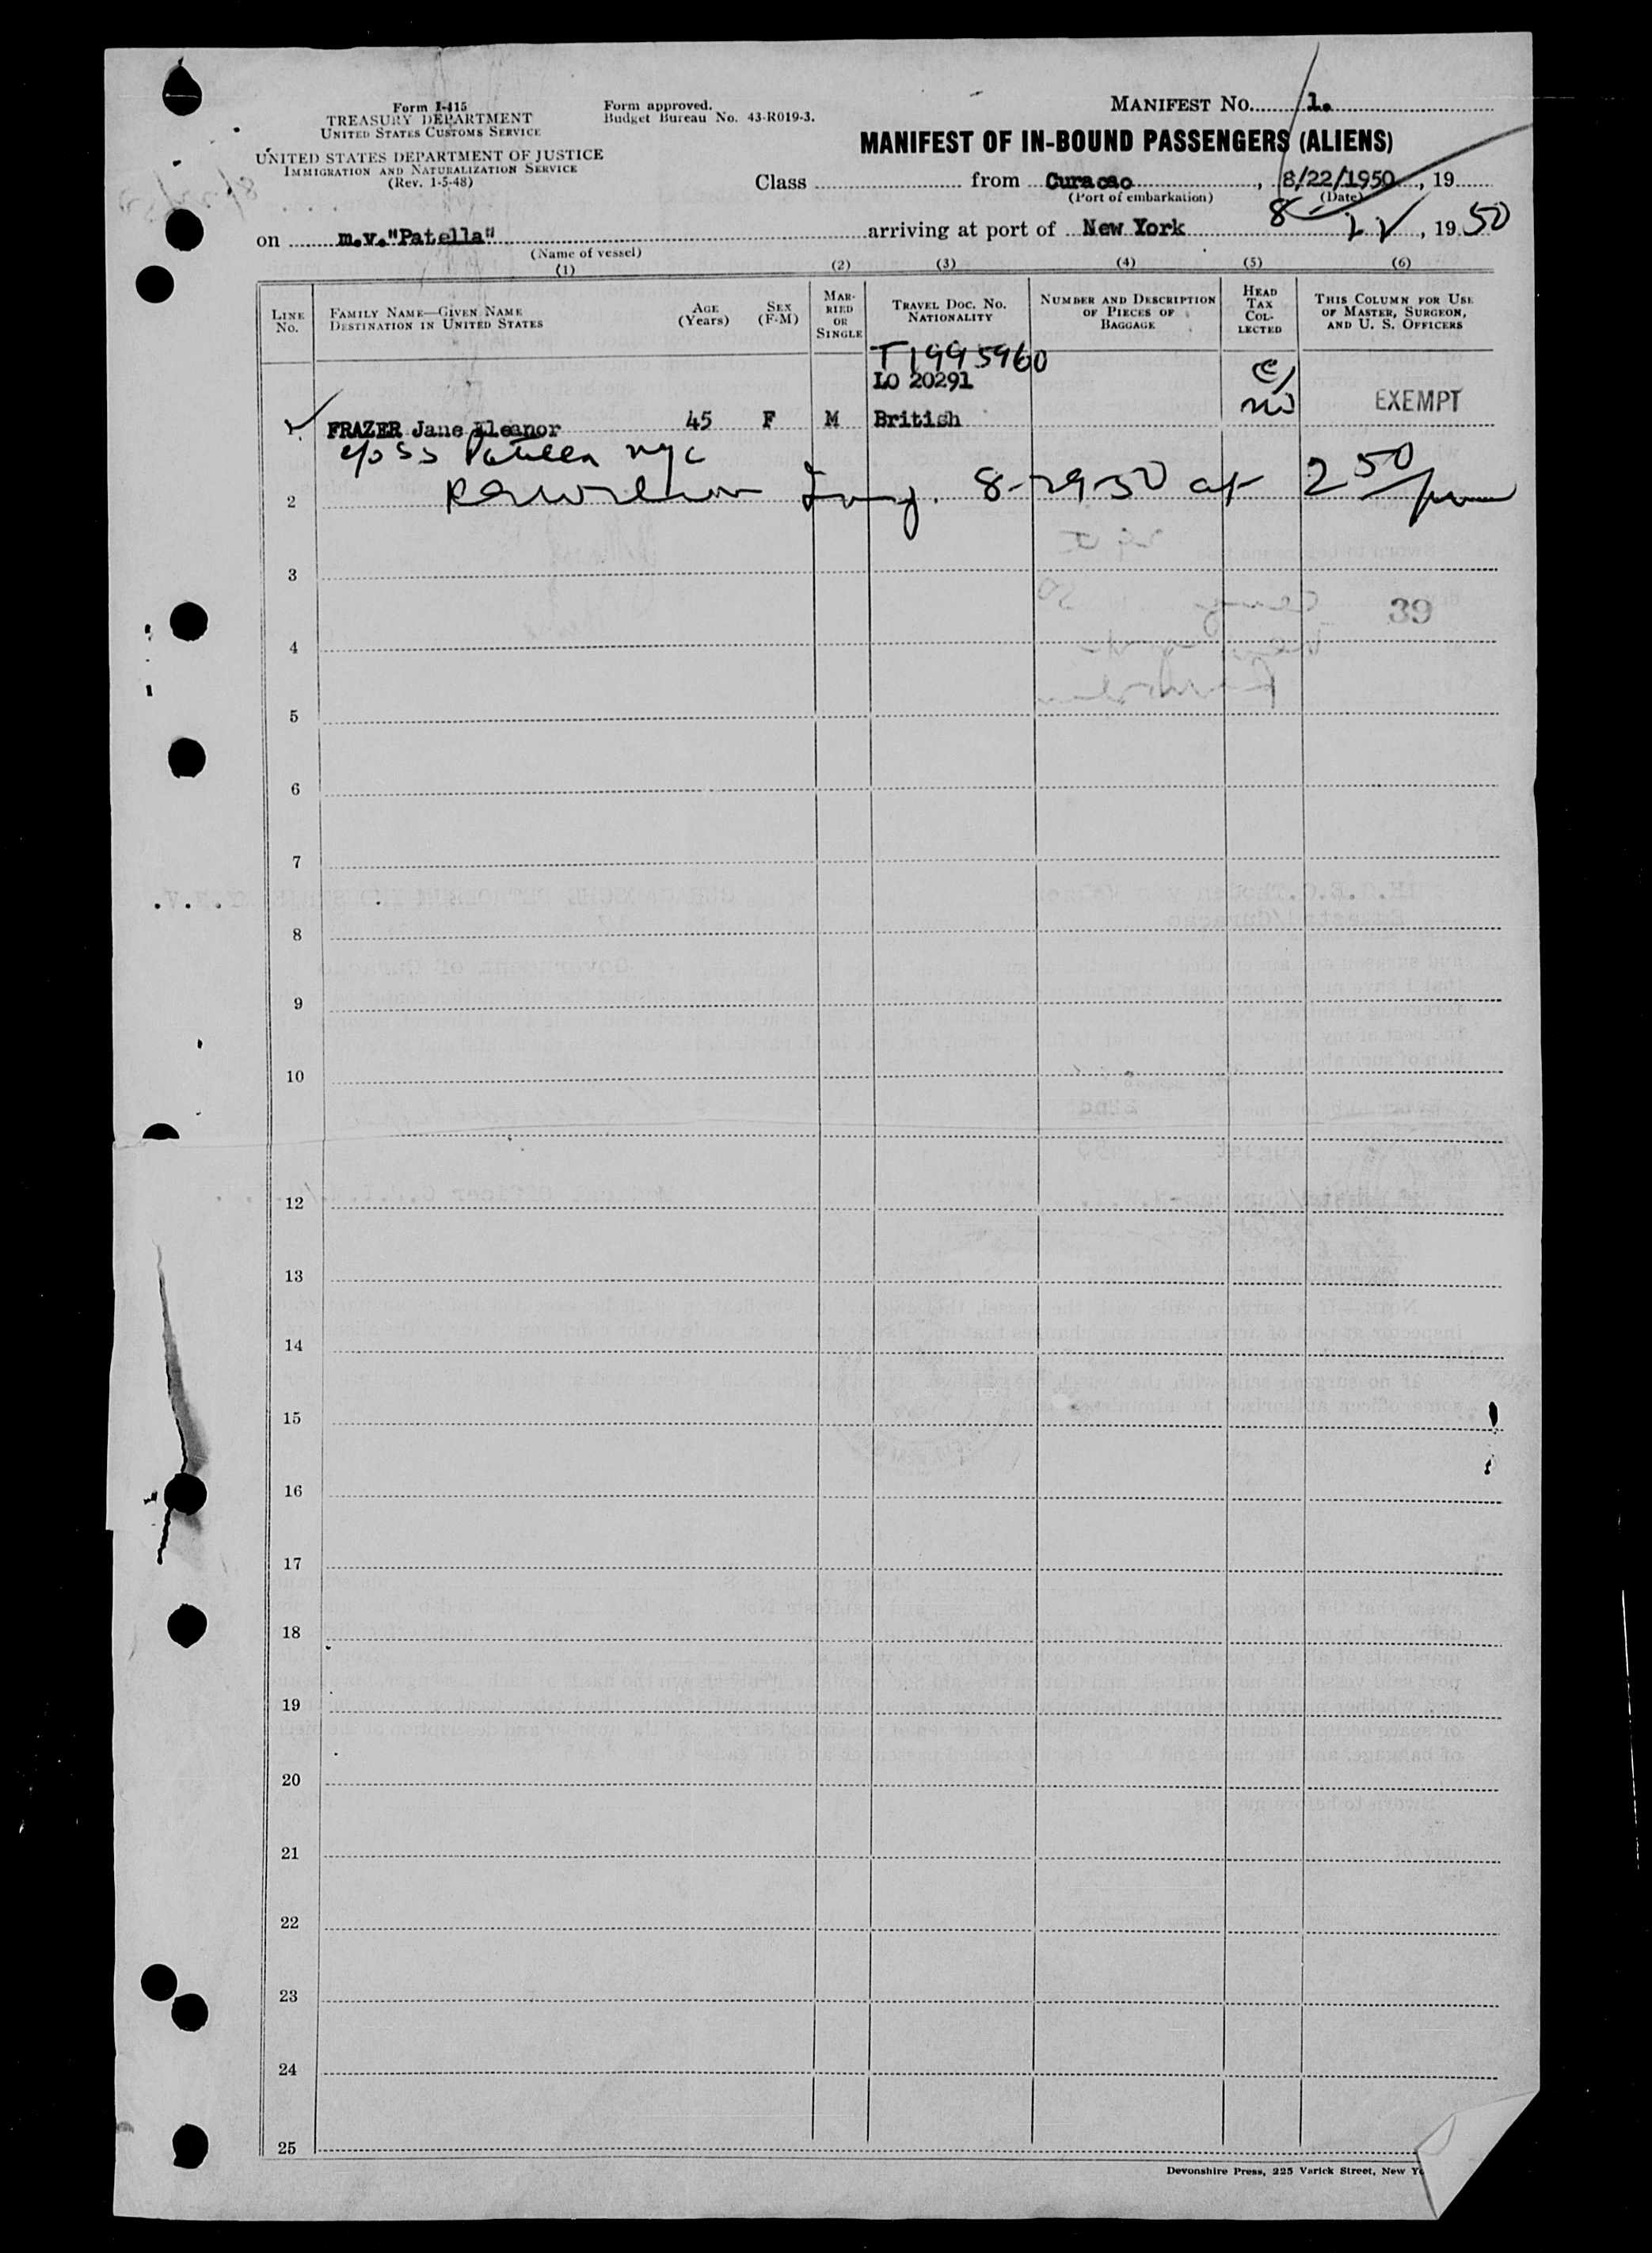 Form I-415
TREASURY DEPARTMENT
UNITED STATES CUSTOMS SERVICE
UNITED STATES DEPARTMENT OF JUSTICE
IMMIGRATION AND NATURALIZATION SERVICE
(Rev. 1-5-48)
Form approved.
Budget Bureau No. 43-R019-3.
MANIFEST NO. 1.
MANIFEST OF IN-BOUND PASSENGERS (ALIENS)
Class from Curacao, 8/22/1950, 19
(Port of embarkation) (Date)
on m.v."Patella" arriving at port of New York 8- , 1950
(Name of vessel)
(1) (2) (3) (4) (5) (6)
LINE NO.
FAMILY NAME—GIVEN NAME
DESTINATION IN UNITED STATES
AGE (Years)
SEX (F-M)
MARRIED OR SINGLE
TRAVEL DOC. NO.
NATIONALITY
NUMBER AND DESCRIPTION OF PIECES OF BAGGAGE
HEAD TAX COLLECTED
THIS COLUMN FOR USE OF MASTER, SURGEON, AND U. S. OFFICERS
T1995960
LO 20291
EXEMPT
1 FRAZER Jane Eleanor 45 F M British
c/o SS Patella nyc
2 8-29-50 at 2 50/pm
3
39
4
5
6
7
8
9
10
12
13
14
15
16
17
18
19
20
21
22
23
24
25
Devonshire Press, 225 Varick Street, New